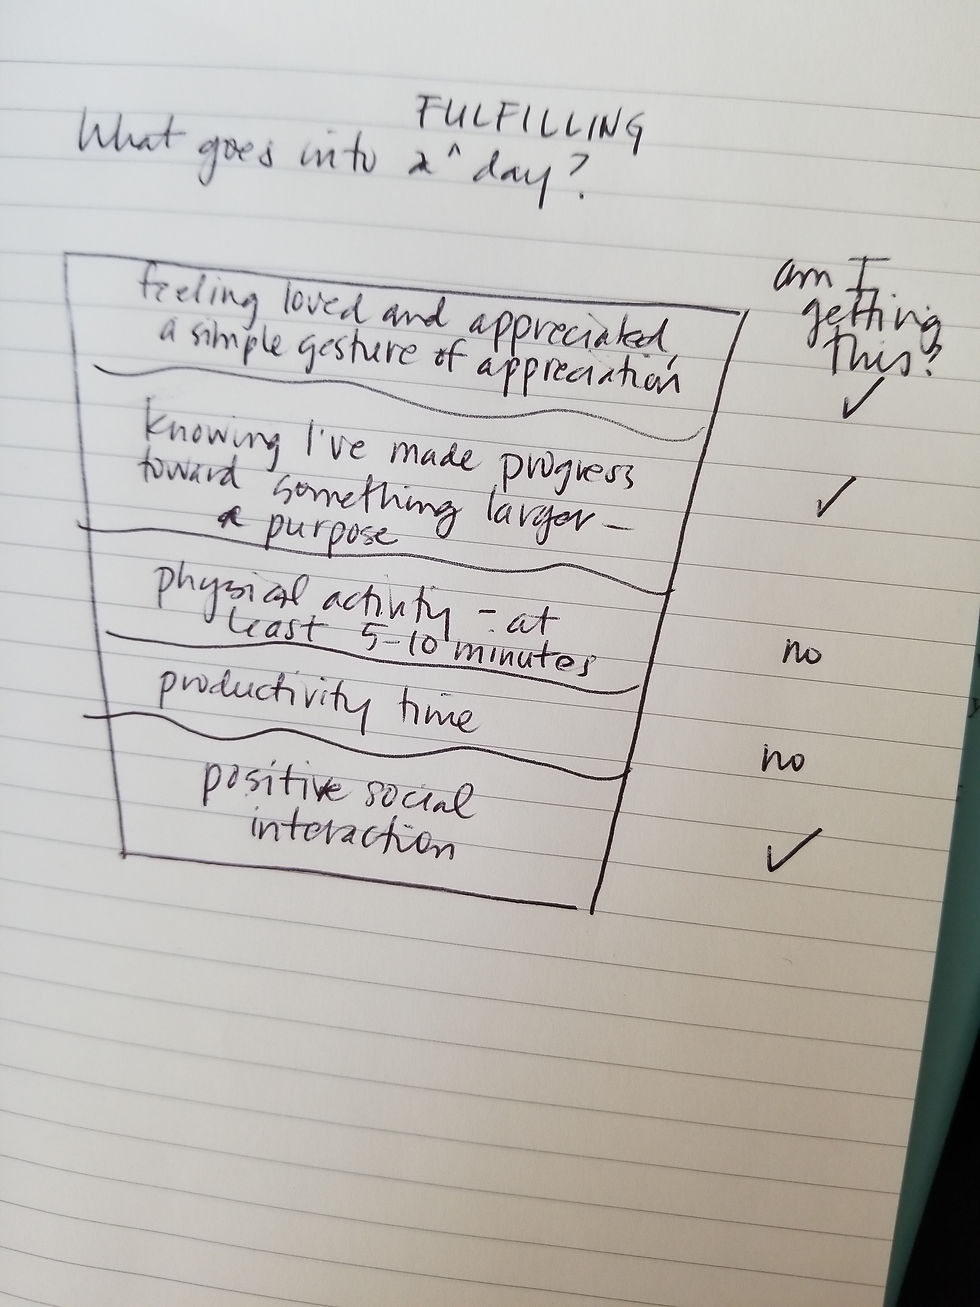 FULFILLING
What goes into a ^ day?
am I
getting
this?
feeling loved and appreciated,
a simple gesture of appreciation
✓
knowing I've made progress
toward something larger –
a purpose
✓
physical activity – at
least 5-10 minutes
no
productivity time
no
positive social
interaction
✓